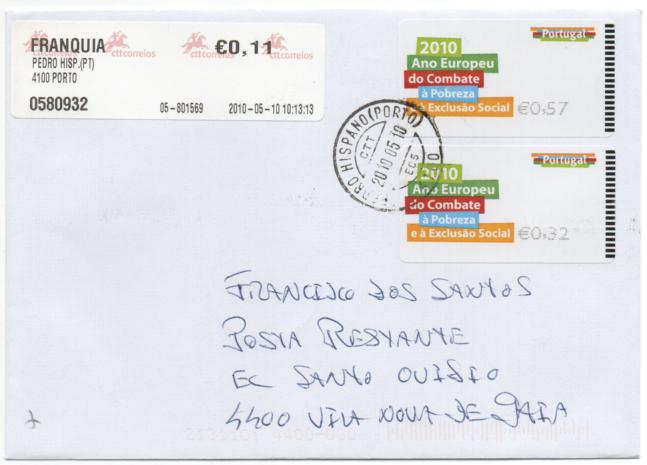 FRANQUIA
PEDRO HISP.(PT)
4100 PORTO
0580932
cttcorreios cttcorreios cttcorreios
€0,11
05-801569 2010-05-10 10:13:13
Portugal
2010
Ano Europeu
do Combate
à Pobreza
e à Exclusão Social €0,57
PEDRO HISPANO (PORTO)
CTT
2010 05 10
ECS
Portugal
2010
Ano Europeu
do Combate
à Pobreza
e à Exclusão Social €0,32
FRANCISCO DOS SANTOS
POSTA RESTANTE
EC SANTO OVIDIO
4400 VILA NOVA DE GAIA
4400-000